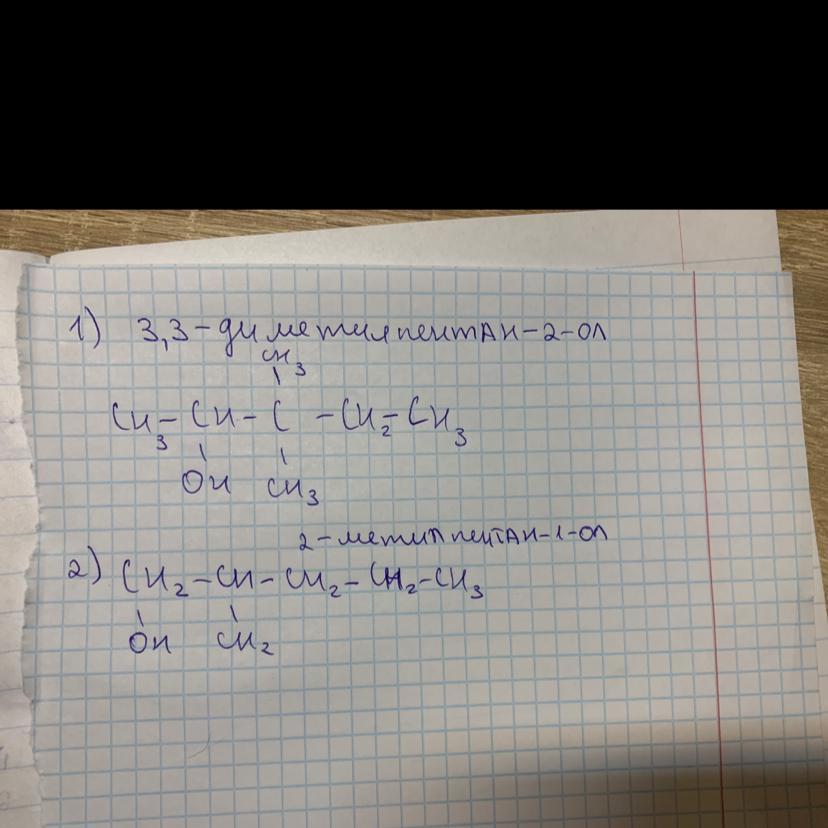 1) 3,3-диметилпентАН-2-ОЛ
CH3
CH3-CH-C-CH2-CH3
OH CH3
2-метилпентАН-1-ОЛ
2) CH2-CH-CH2-CH2-CH3
OH CH2